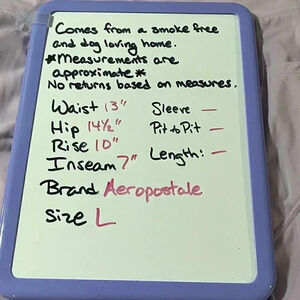 Comes from a smoke free
and dog loving home.
*Measurements are
approximate*
No returns based on measures.
Waist 13"
Hip 14½"
Rise 10"
Inseam 7"
Sleeve —
Pit to Pit —
Length: —
Brand Aeropostale
Size L